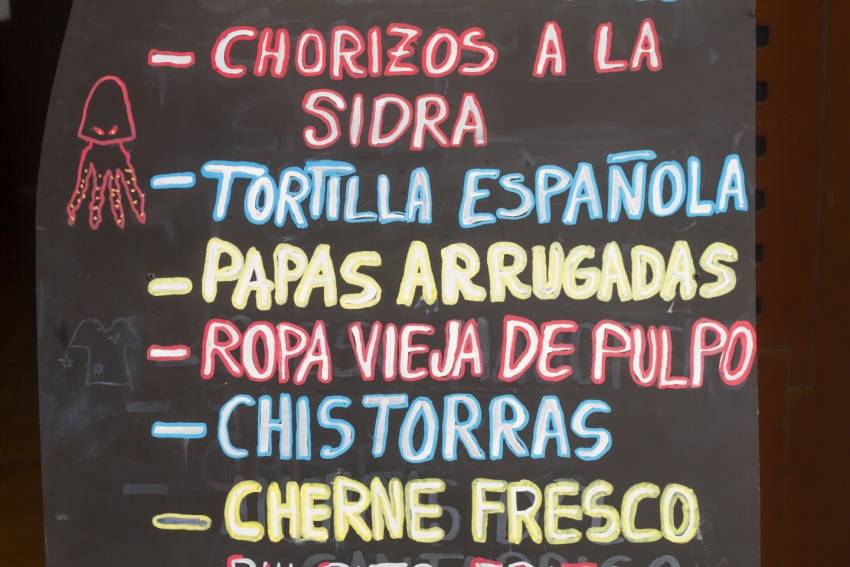 - CHORIZOS A LA
SIDRA
- TORTILLA ESPAÑOLA
- PAPAS ARRUGADAS
- ROPA VIEJA DE PULPO
- CHISTORRAS
- CHERNE FRESCO